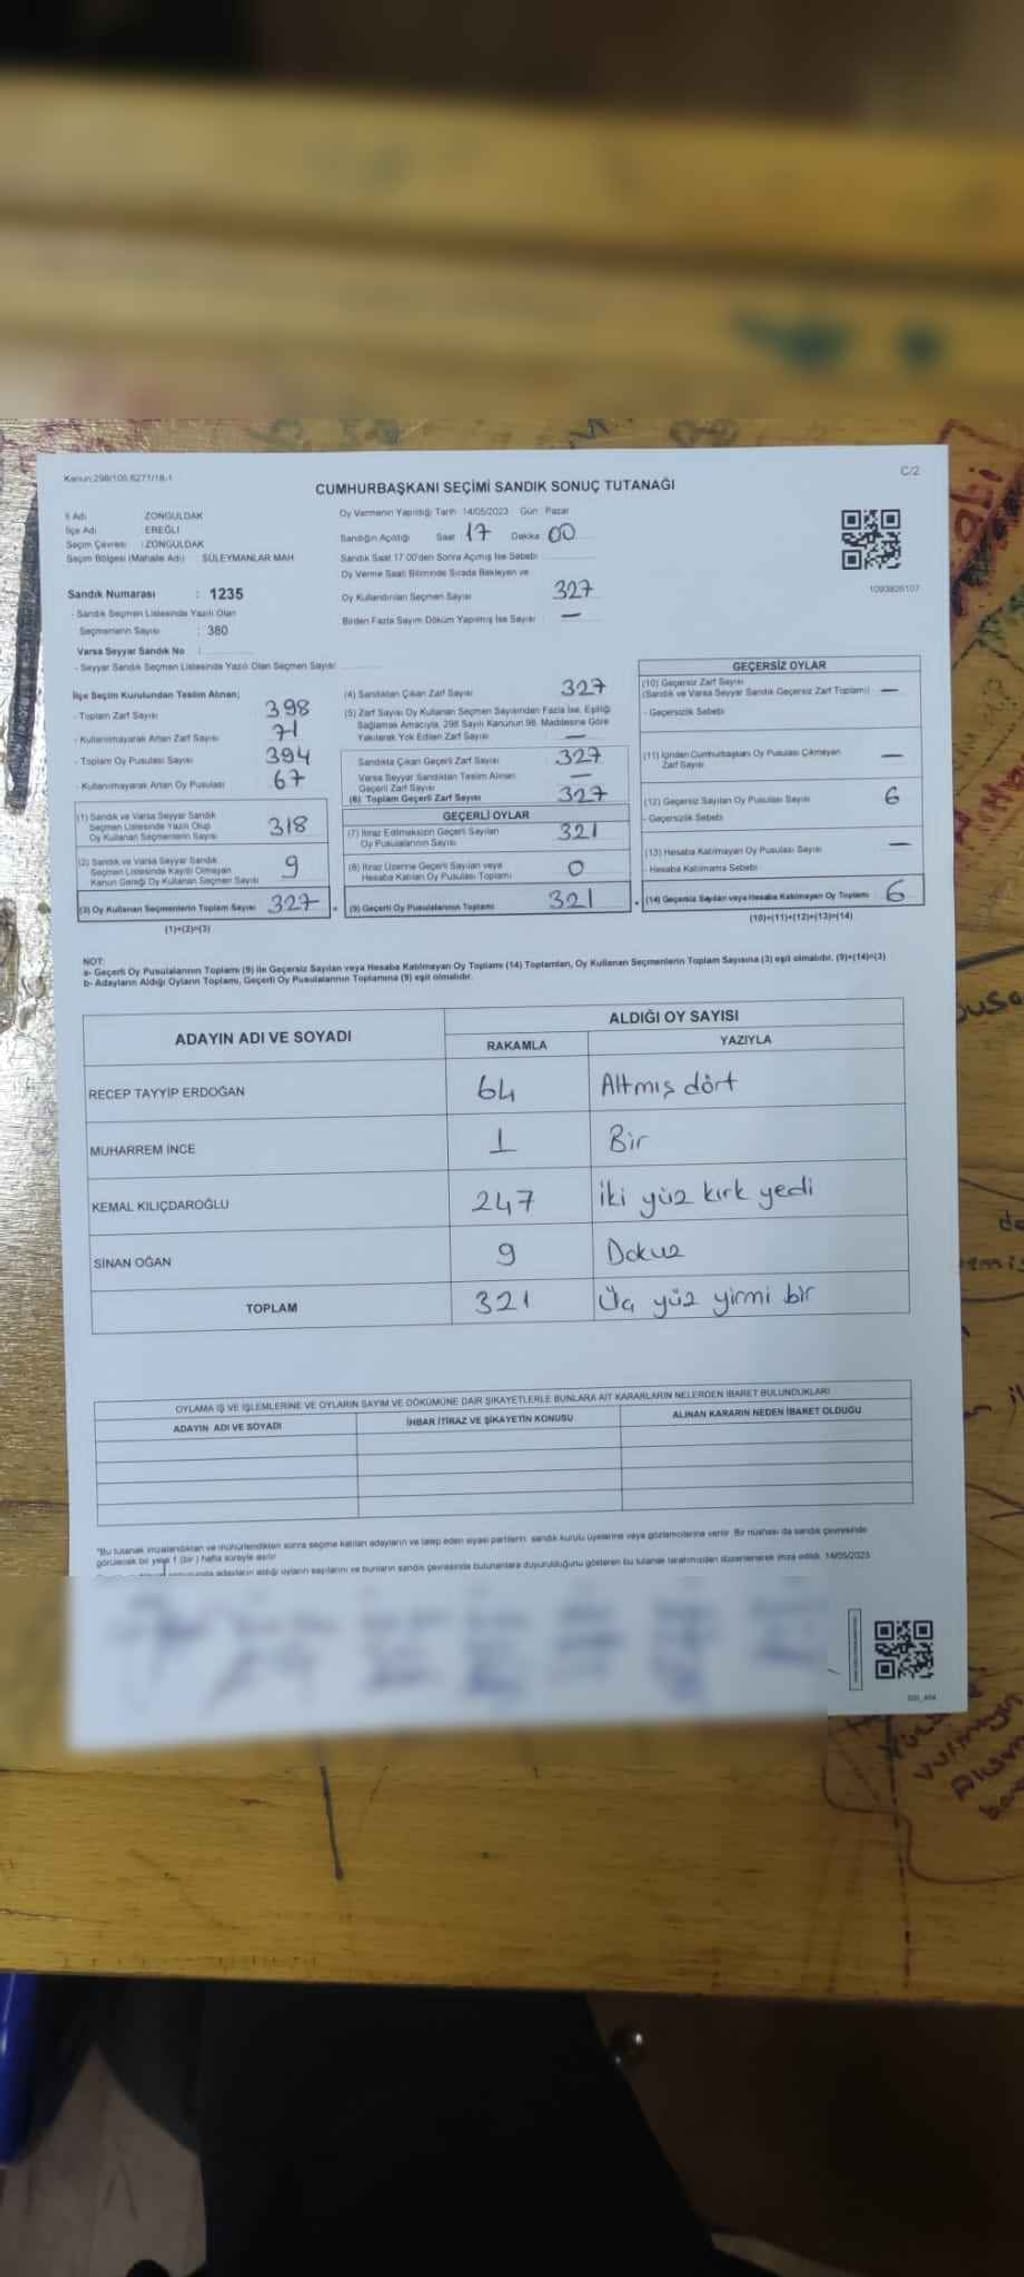 Kanun:298/105,6271/18-1
C/2
CUMHURBAŞKANI SEÇİMİ SANDIK SONUÇ TUTANAĞI
İl Adı ZONGULDAK
İlçe Adı EREĞLİ
Seçim Çevresi : ZONGULDAK
Seçim Bölgesi (Mahalle Adı) SÜLEYMANLAR MAH
Sandık Numarası : 1235
- Sandık Seçmen Listesinde Yazılı Olan
Seçmenlerin Sayısı : 380
Varsa Seyyar Sandık No :
- Seyyar Sandık Seçmen Listesinde Yazılı Olan Seçmen Sayısı
Oy Vermenin Yapıldığı Tarih 14/05/2023 Gün : Pazar
Sandığın Açıldığı Saat 17 Dakika 00
Sandık Saat 17.00'den Sonra Açılmış İse Sebebi
Oy Verme Saati Bitiminde Sırada Bekleyen ve
Oy Kullandırılan Seçmen Sayısı 327
Birden Fazla Sayım Döküm Yapılmış İse Sayısı —
1093826107
İlçe Seçim Kurulundan Teslim Alınan;
- Toplam Zarf Sayısı 398
- Kullanılmayarak Artan Zarf Sayısı 71
- Toplam Oy Pusulası Sayısı 394
- Kullanılmayarak Artan Oy Pusulası 67
(1) Sandık ve Varsa Seyyar Sandık
Seçmen Listesinde Yazılı Olup
Oy Kullanan Seçmenlerin Sayısı 318
(2) Sandık ve Varsa Seyyar Sandık
Seçmen Listesinde Kayıtlı Olmayan
Kanun Gereği Oy Kullanan Seçmen Sayısı 9
(3) Oy Kullanan Seçmenlerin Toplam Sayısı 327
(1)+(2)=(3)
(4) Sandıktan Çıkan Zarf Sayısı 327
(5) Zarf Sayısı Oy Kullanan Seçmen Sayısından Fazla İse, Eşitliği
Sağlamak Amacıyla, 298 Sayılı Kanunun 98. Maddesine Göre
Yakılarak Yok Edilen Zarf Sayısı —
Sandıkta Çıkan Geçerli Zarf Sayısı 327
Varsa Seyyar Sandıktan Teslim Alınan
Geçerli Zarf Sayısı —
(6) Toplam Geçerli Zarf Sayısı 327
GEÇERLİ OYLAR
(7) İtiraz Edilmeksizin Geçerli Sayılan
Oy Pusulalarının Sayısı 321
(8) İtiraz Üzerine Geçerli Sayılan veya
Hesaba Katılan Oy Pusulası Toplamı 0
(9) Geçerli Oy Pusulalarının Toplamı 321
GEÇERSİZ OYLAR
(10) Geçersiz Zarf Sayısı
(Sandık ve Varsa Seyyar Sandık Geçersiz Zarf Toplamı) —
- Geçersizlik Sebebi
(11) İçinden Cumhurbaşkanı Oy Pusulası Çıkmayan
Zarf Sayısı —
(12) Geçersiz Sayılan Oy Pusulası Sayısı 6
- Geçersizlik Sebebi
(13) Hesaba Katılmayan Oy Pusulası Sayısı —
- Hesaba Katılmama Sebebi
(14) Geçersiz Sayılan veya Hesaba Katılmayan Oy Toplamı 6
(10)+(11)+(12)+(13)=(14)
NOT:
a- Geçerli Oy Pusulalarının Toplamı (9) ile Geçersiz Sayılan veya Hesaba Katılmayan Oy Toplamı (14) Toplamları, Oy Kullanan Seçmenlerin Toplam Sayısına (3) eşit olmalıdır. (9)+(14)=(3)
b- Adayların Aldığı Oyların Toplamı, Geçerli Oy Pusulalarının Toplamına (9) eşit olmalıdır.
ADAYIN ADI VE SOYADI ALDIĞI OY SAYISI
RAKAMLA YAZIYLA
RECEP TAYYİP ERDOĞAN 64 Altmış dört
MUHARREM İNCE 1 Bir
KEMAL KILIÇDAROĞLU 247 İki yüz kırk yedi
SİNAN OĞAN 9 Dokuz
TOPLAM 321 Üç yüz yirmi bir
OYLAMA İŞ VE İŞLEMLERİNE VE OYLARIN SAYIM VE DÖKÜMÜNE DAİR ŞİKAYETLERLE BUNLARA AİT KARARLARIN NELERDEN İBARET BULUNDUKLARI
ADAYIN ADI VE SOYADI İHBAR İTİRAZ VE ŞİKAYETİN KONUSU ALINAN KARARIN NEDEN İBARET OLDUĞU
"Bu tutanak imzalandıktan ve mühürlendikten sonra seçime katılan adayların ve talep eden siyasi partilerin, sandık kurulu üyelerine veya gözlemcilerine verilir. Bir nüshası da sandık çevresinde
görülecek bir yere 1 (bir) hafta süreyle asılır.
adayların aldığı oyların sayılarını ve bunların sandık çevresinde bulunanlara duyurulduğunu gösteren bu tutanak tarafımızdan düzenlenerek imza edildi. 14/05/2023